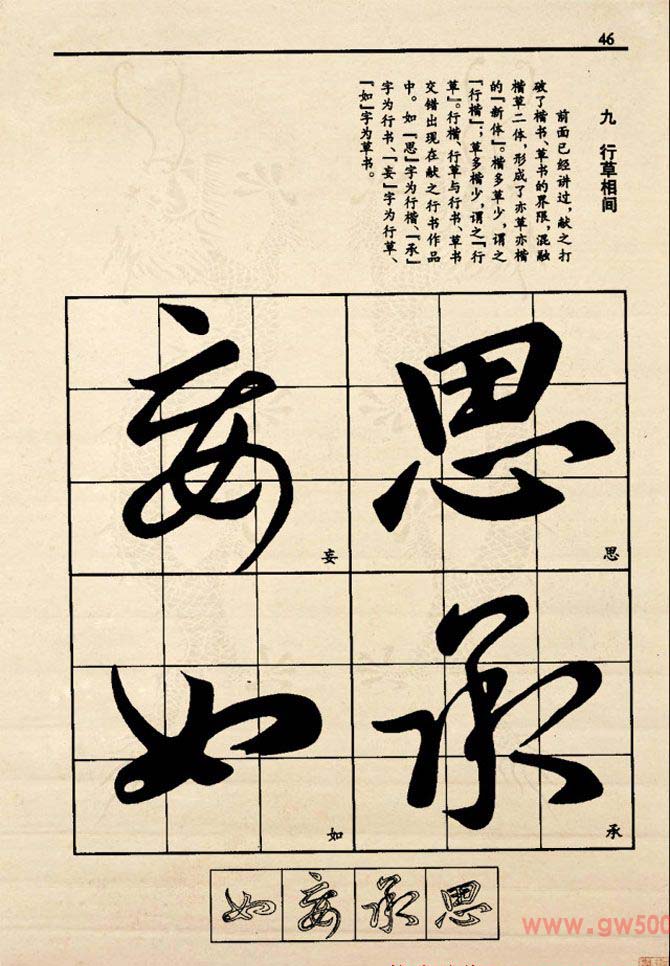 46
九 行草相间
前面已经讲过，献之打
破了楷书、草书的界限，混融
楷草二体，形成了亦草亦楷
的『新体』。楷多草少，谓之
『行楷』；草多楷少，谓之『行
草』。行楷、行草与行书、草书
交错出现在献之行书作品
中。如『思』字为行楷、『承』
字为行书、『妄』字为行草、
『如』字为草书。
思
思
承
承
妄
妄
如
如
如妄承思
www.gw500